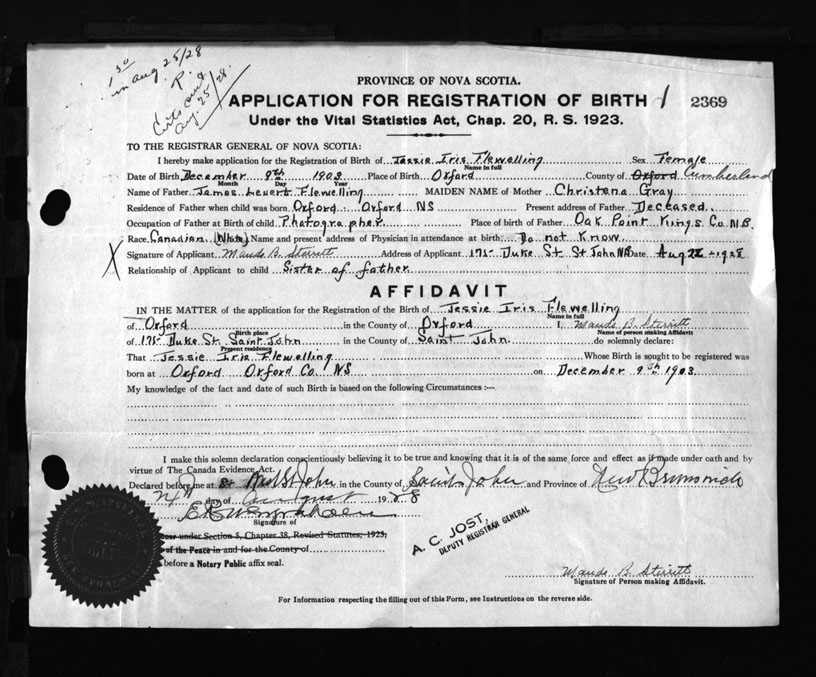 1 50
in aug 25/28
P.
Certs and
Aug 25/28.
PROVINCE OF NOVA SCOTIA.
APPLICATION FOR REGISTRATION OF BIRTH 1 2369
Under the Vital Statistics Act, Chap. 20, R. S. 1923.
TO THE REGISTRAR GENERAL OF NOVA SCOTIA:
I hereby make application for the Registration of Birth of Jessie Iris Flewelling Sex Female
Name in full
Date of Birth December 9th 1903 Place of Birth Oxford County of Oxford Cumberland
Month Day Year
Name of Father James Levert Flewelling MAIDEN NAME of Mother Christena Gray
Residence of Father when child was born Oxford Oxford NS Present address of Father Deceased.
Occupation of Father at Birth of child Photographer Place of birth of Father Oak Point Kings Co NB.
Race Canadian (White) Name and present address of Physician in attendance at birth Do not know.
X Signature of Applicant Maude B. Stirritt Address of Applicant 175 Duke St St John NB Date Aug 1928
Relationship of Applicant to child Sister of father
AFFIDAVIT
IN THE MATTER of the application for the Registration of the Birth of Jessie Iris Flewelling
Name in full
of Oxford in the County of Oxford I, Maude B. Stirritt
Birth place Name of person making Affidavit
of 175 Duke St. Saint John in the County of Saint John. do solemnly declare:
Present residence
That Jessie Iris Flewelling Whose Birth is sought to be registered was
born at Oxford Oxford Co. NS on December 9th 1903
My knowledge of the fact and date of such Birth is based on the following Circumstances :—
I make this solemn declaration conscientiously believing it to be true and knowing that it is of the same force and effect as if made under oath and by
virtue of The Canada Evidence Act.
Declared before me at St John in the County of Saint John and Province of New Brunswick
24th day of August 1928
Signature of
under Section 5, Chapter 38, Revised Statutes, 1923,
of the Peace in and for the County of
before a Notary Public affix seal.
A. C. JOST,
DEPUTY REGISTRAR GENERAL
Maude B. Stirritt
Signature of Person making Affidavit.
For Information respecting the filling out of this Form, see Instructions on the reverse side.